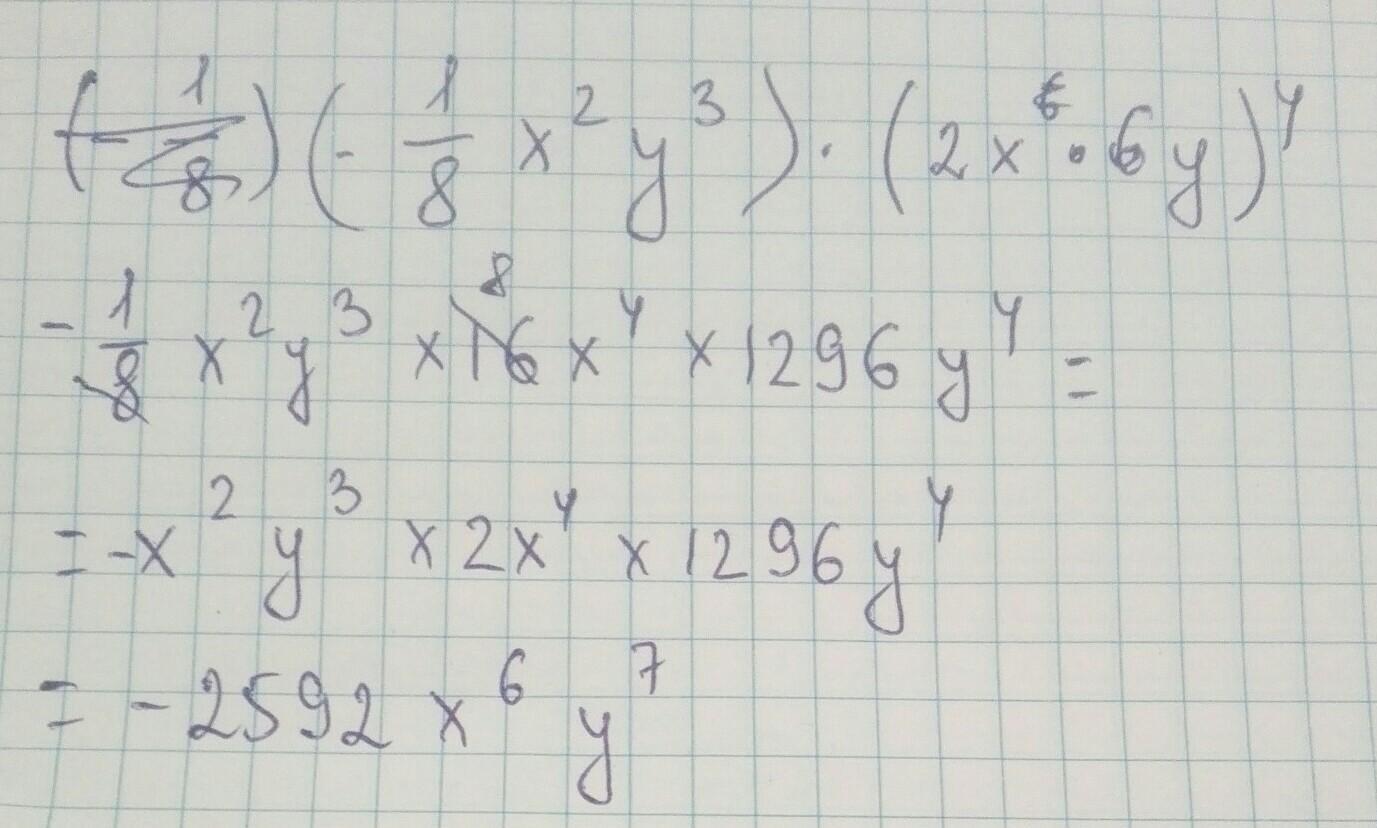 (-1/8) (-1/8 x² y³) · (2x⁶ · 6y)⁴
-1/8 x² y³ × 16 8 x⁴ × 1296 y⁴ =
= -x² y³ × 2x⁴ × 1296 y⁴
= -2592 x⁶ y⁷